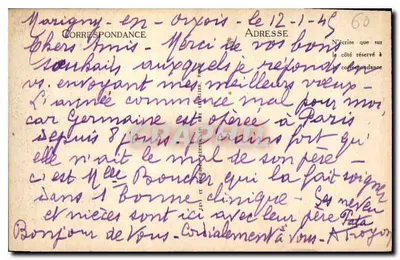 Marigny-en-Orxois - le 12-1-45
60
CORRESPONDANCE
ADRESSE
N'écrire que sur
le côté réservé à
correspondance
Chers Amis - Merci de vos bons
souhaits auxquels je réponds en
vs envoyant mes meilleurs voeux -
L'année commence mal pour moi
car Germaine est opérée à Paris
depuis 8 jours, je crains fort qu'
elle n'ait le mal de son père -
c'est Mlle Boucher qui la fait soigner
dans 1 bonne clinique - Les neveu
et nièces sont ici avec leur père
Bonjour de Vous - Cordialement à vous -